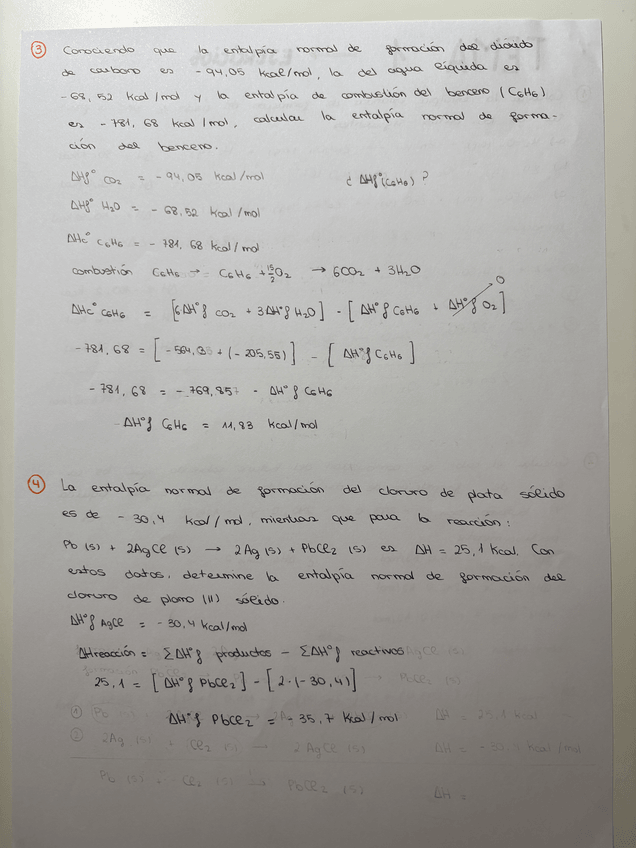 ③ Conociendo que la entalpía normal de formación del dióxido
de carbono es -94,05 Kcal/mol, la del agua líquida es
-68,52 Kcal/mol y la entalpía de combustión del benceno (C6H6)
es -781,68 Kcal/mol, calcular la entalpía normal de forma-
ción del benceno.
ΔHf° CO2 = -94,05 Kcal/mol ¿ ΔHf°(C6H6) ?
ΔHf° H2O = -68,52 Kcal/mol
ΔHc° C6H6 = -781,68 Kcal/mol
combustión C6H6 → C6H6 + 15/2 O2 → 6CO2 + 3H2O
ΔHc° C6H6 = [6ΔH°f CO2 + 3ΔH°f H2O] - [ΔH°f C6H6 + ΔH°f O2] 0
-781,68 = [-564,3 + (-205,55)] - [ΔH°f C6H6]
-781,68 = -769,85 - ΔH°f C6H6
ΔH°f C6H6 = 11,83 Kcal/mol
④ La entalpía normal de formación del cloruro de plata sólido
es de -30,4 Kcal/mol, mientras que para la reacción:
Pb (s) + 2AgCl (s) → 2Ag (s) + PbCl2 (s) es ΔH = 25,1 Kcal. Con
estos datos, determine la entalpía normal de formación del
cloruro de plomo (II) sólido.
ΔH°f AgCl = -30,4 Kcal/mol
ΔHreacción = ΣΔH°f productos - ΣΔH°f reactivos
25,1 = [ΔH°f PbCl2] - [2·(-30,4)]
ΔH°f PbCl2 = -35,7 Kcal/mol
① Pb ΔH = 25,1 Kcal
② 2Ag (s) + Cl2 → 2AgCl (s) ΔH = Kcal/mol
Pb (s) Cl2 → PbCl2 (s) ΔH =